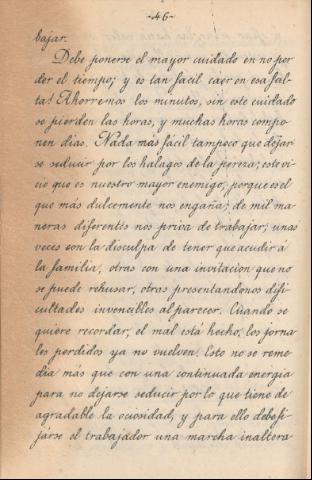 -46-
bajar.
Debe ponerse el mayor cuidado en no per
der el tiempo; y es tan fácil caer en esa fal-
ta! Ahorremos los minutos, sin este cuidado
se pierden las horas, y muchas horas compo
nen días. Nada más fácil tampoco que dejar
se seducir por los hálagos de la pereza; este vi
cio que es nuestro mayor enemigo, porque es el
que más dulcemente nos engaña; de mil ma
neras diferentes nos priva de trabajar; unas
veces con la disculpa de tener que acudir á
la familia, otras con una invitacion que no
se puede rehusar, otras presentandonos difi
cultades invencibles al parecer. Cuando se
quiere recordar, el mal está hecho, los jorna
les perdidos ya no vuelven! Esto no se reme
dia más que con una continuada energia
para no dejarse seducir por lo que tiene de
agradable la ociosidad, y para ello debe fi-
jarse el trabajador una marcha inaltera